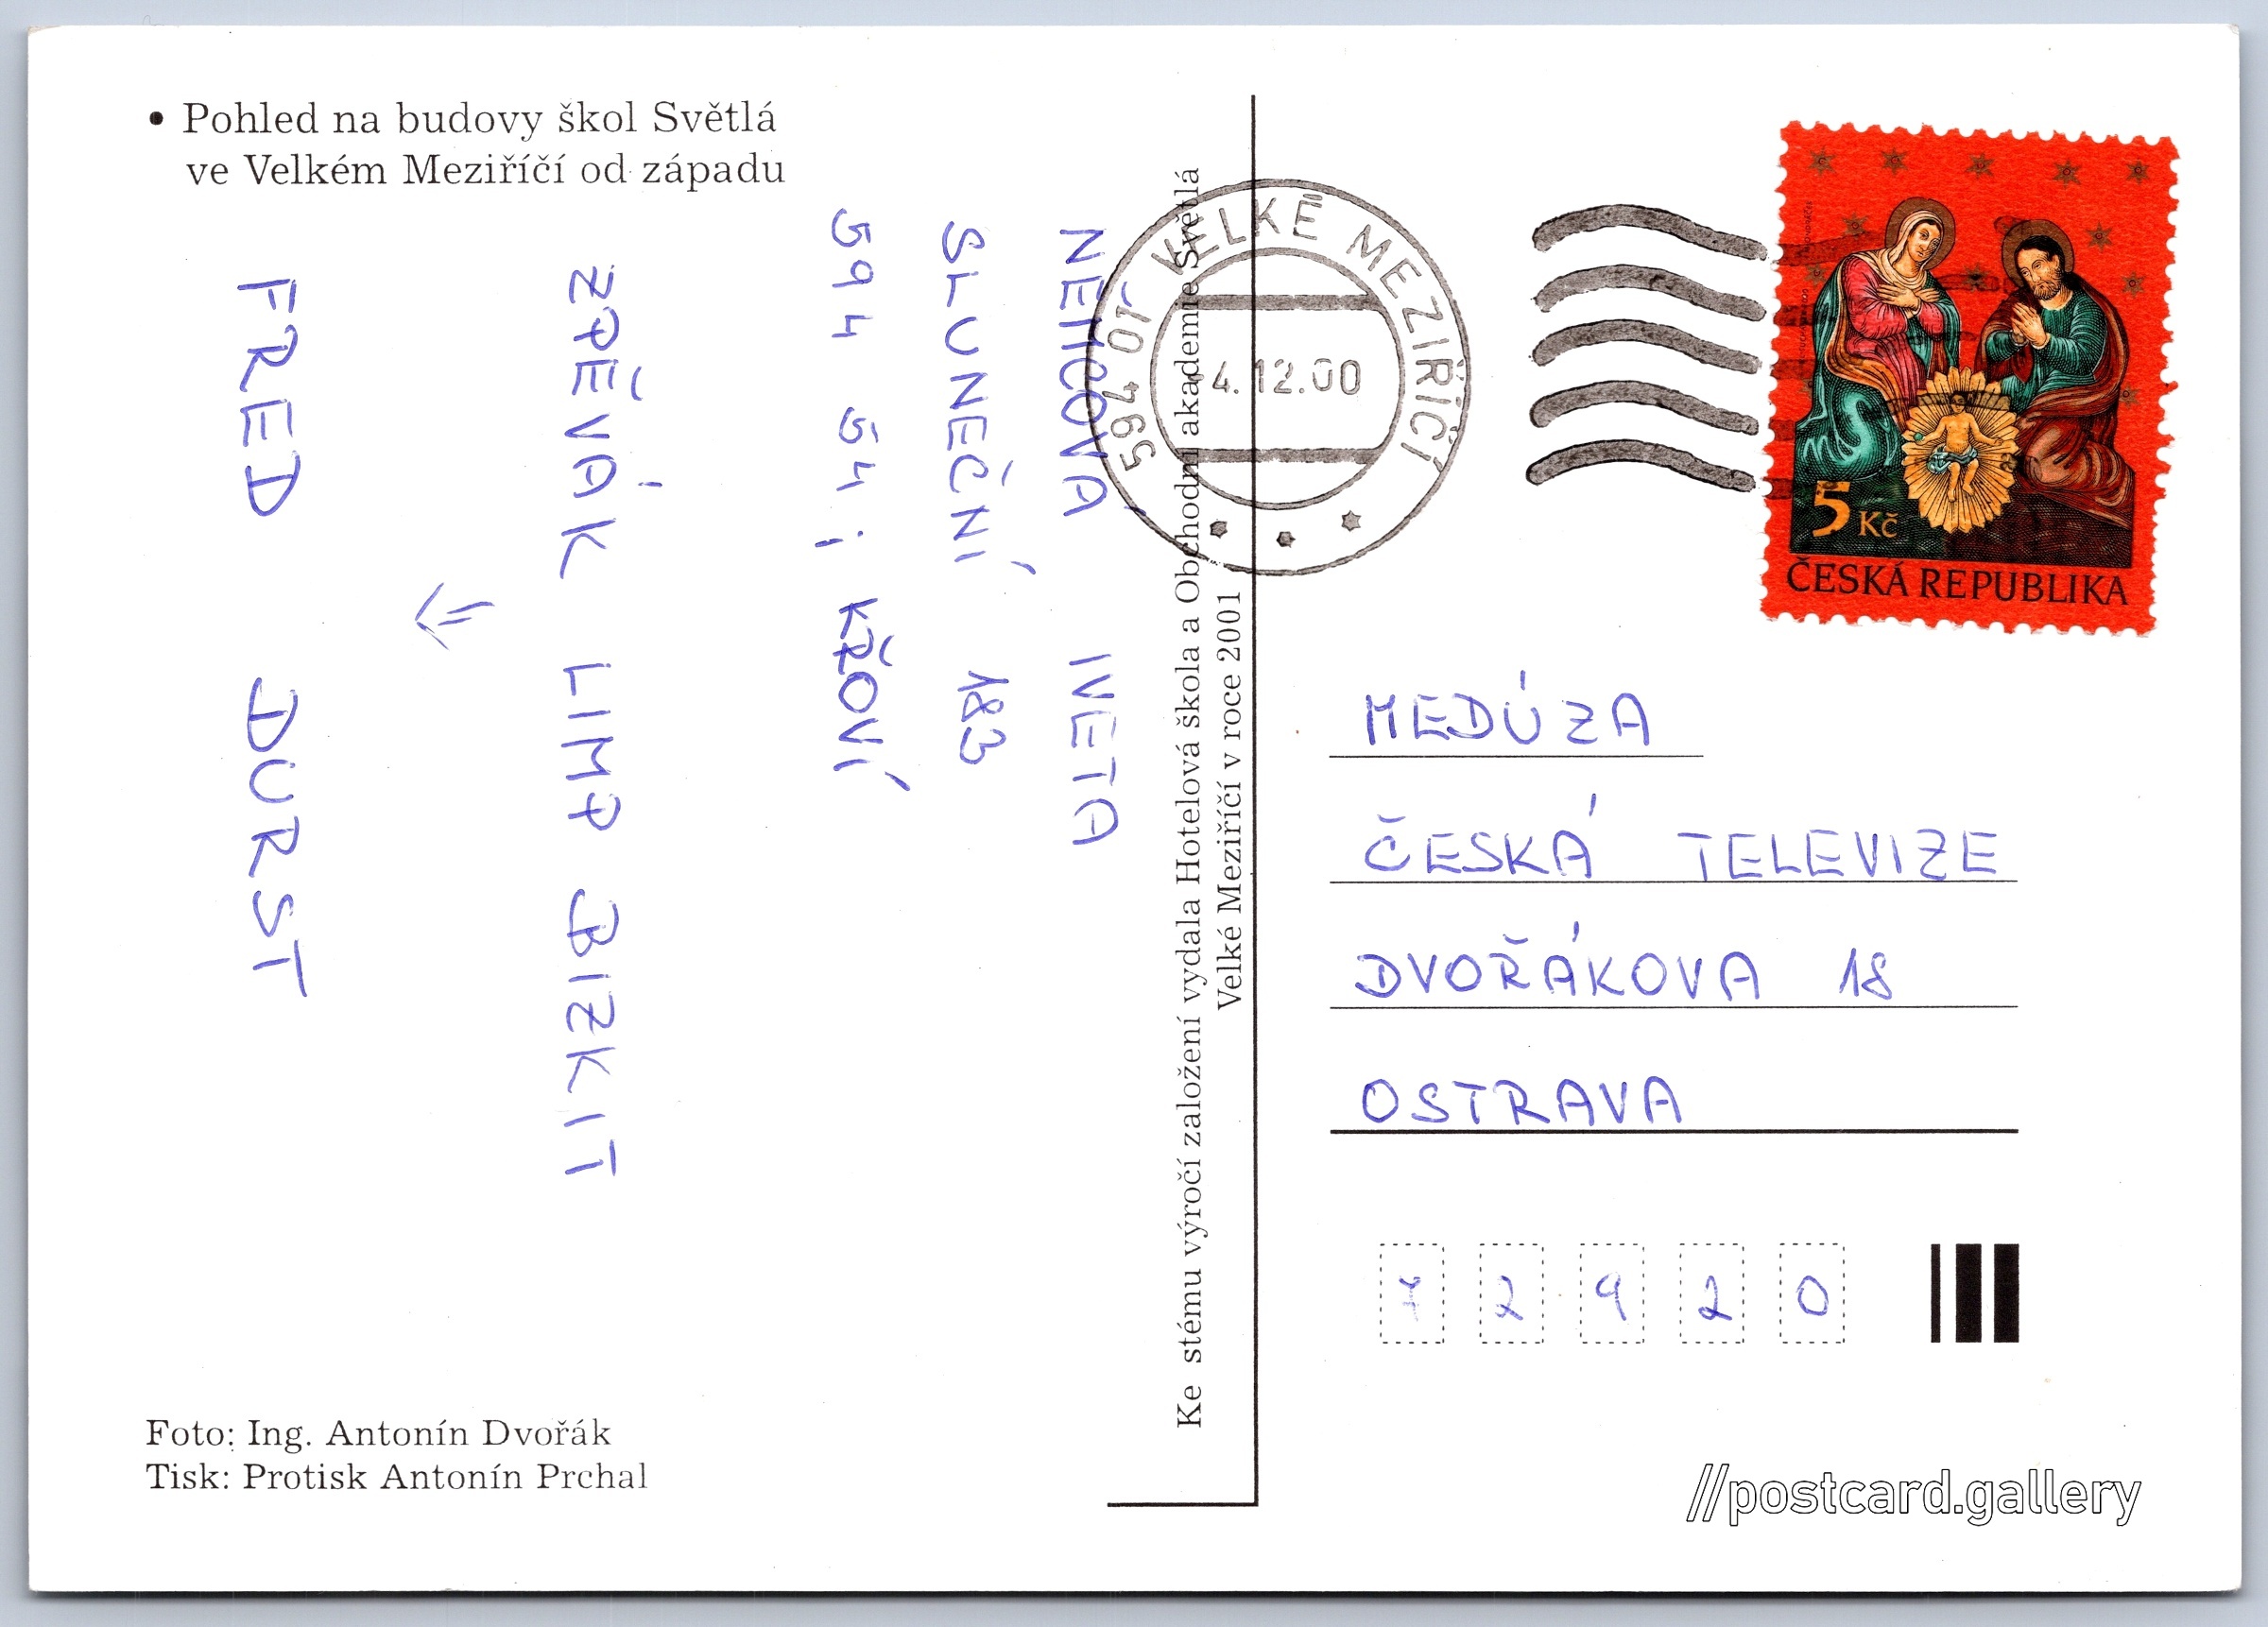 • Pohled na budovy škol Světlá
ve Velkém Meziříčí od západu
NĚMCOVÁ IVETA
SLUNEČNÍ 183
594 54 ; KŘOVÍ
ZPĚVÁK LIMP BIZKIT
FRED DURST
Foto: Ing. Antonín Dvořák
Tisk: Protisk Antonín Prchal
Ke stému výročí založení vydala Hotelová škola a Obchodní akademie Světlá
Velké Meziříčí v roce 2001
594 01 VELKÉ MEZIŘÍČÍ
4.12.00
5 Kč
ČESKÁ REPUBLIKA
MEDÚZA
ČESKÁ TELEVIZE
DVOŘÁKOVA 18
OSTRAVA
7 2 9 2 0
//postcard.gallery